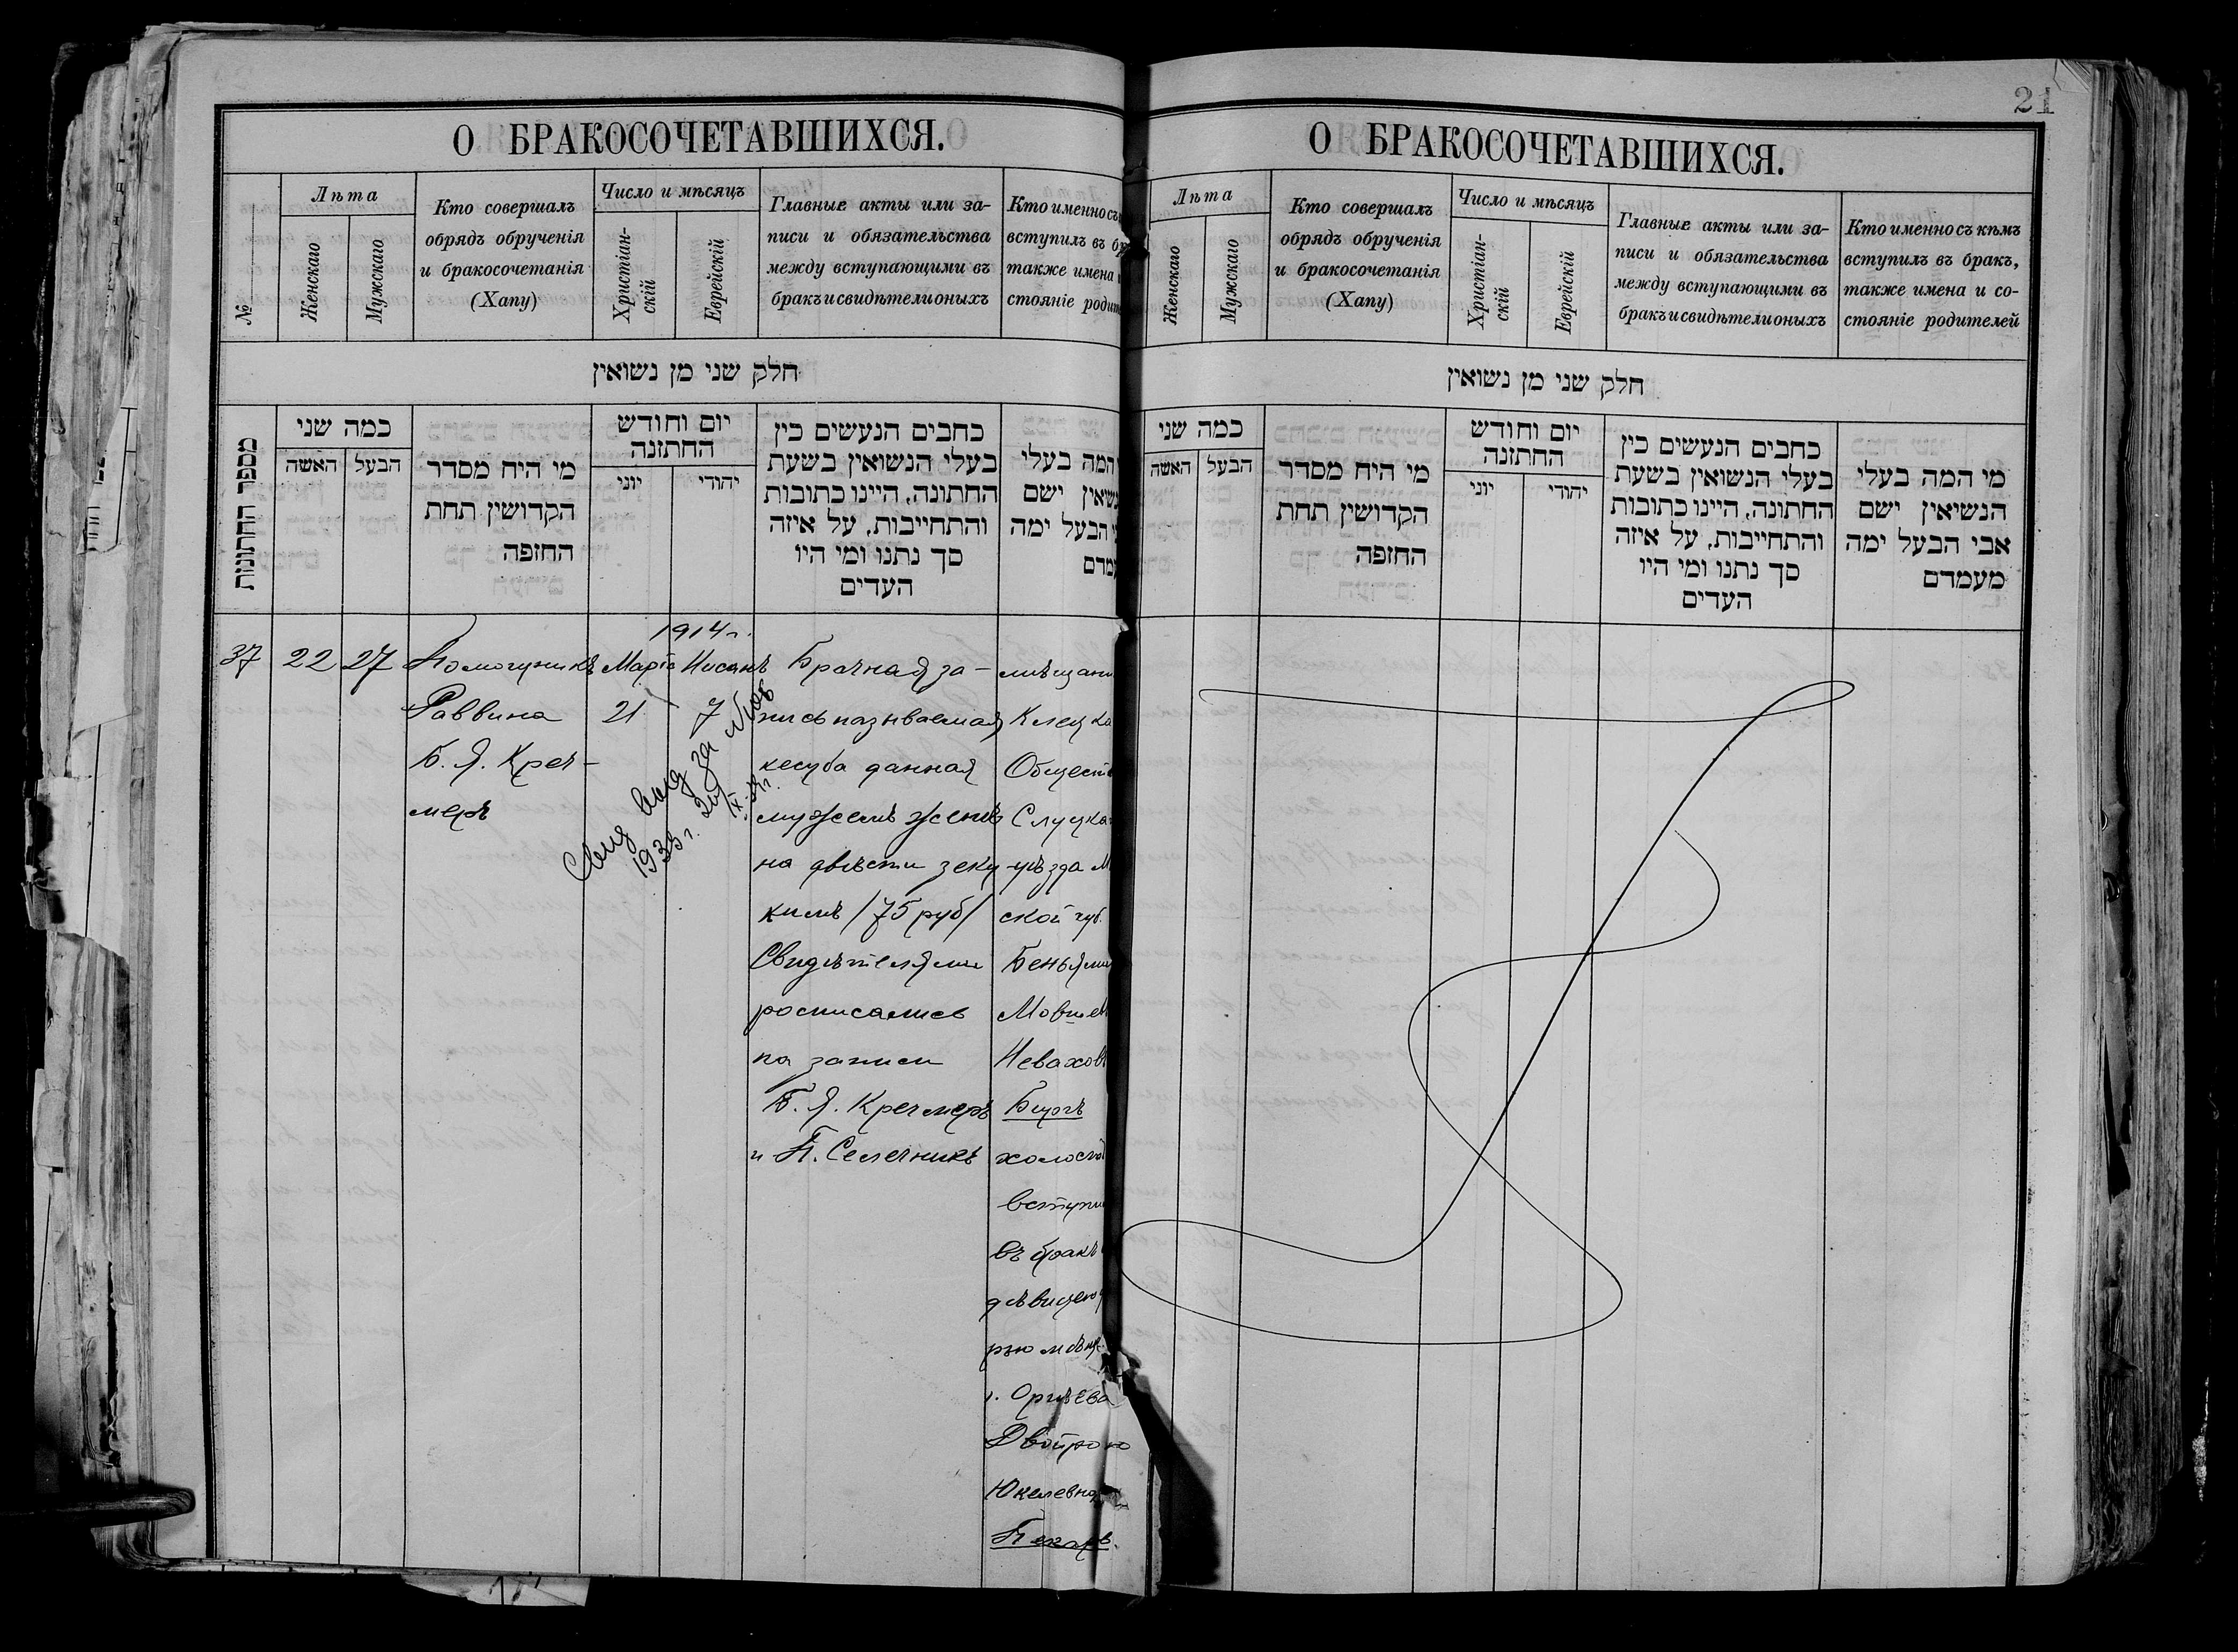 21
О БРАКОСОЧЕТАВШИХСЯ.
№
Лѣта
Женскаго
Мужскаго
Кто совершалъ
обрядъ обрученія
и бракосочетанія
(Хапу)
Число и мѣсяцъ
Христіан-
скій
Еврейскій
Главные акты или за-
писи и обязательства
между вступающими въ
бракъ и свидѣтели оныхъ
Кто именно съ
вступилъ въ бр
также имена
стояніе родит
חלק שני מן נשואין
מספר החתונות
כמה שני
האשה
הבעל
מי היח מסדר
הקדושין תחת
החזפה
יום וחודש
החתזנה
יוני
יהודי
כחבים הנעשים כין
בעלי הנשואין בשעת
החתונה, היינו כתובות
והתחייבות, על איזה
סך נתנו ומי היו
העדים
המה בעלי
נשואין ישם
הבעל ימה
מדם
37
22
27
Помощникъ
Раввина
Б. Я. Креч-
меръ
1914 г.
Марта
21
Нисанъ
7
Свид выд за №
1933 г.
Брачная за-
пись называемая
кесуба данная
мужемъ женѣ
на двѣсти зеку
кимъ /75 руб/
Свидѣтелями
росписались
на записи
Б. Я. Кречмеръ
и П. Селечникъ
мѣщани
Клецка
Обществ
Слуцка
уѣзда М
ской губ.
Беньямин
Мовшев
Невахов
Бергъ
холостой
вступи
въ бракъ
дѣвицею
рью мѣщ.
г. Оргѣева
Двойрою
Юкелевною
Пекарь.
О БРАКОСОЧЕТАВШИХСЯ.
Лѣта
Женскаго
Мужскаго
Кто совершалъ
обрядъ обрученія
и бракосочетанія
(Хапу)
Число и мѣсяцъ
Христіан-
скій
Еврейскій
Главные акты или за-
писи и обязательства
между вступающими въ
бракъ и свидѣтели оныхъ
Кто именно съ кѣмъ
вступилъ въ бракъ,
также имена и со-
стояніе родителей
חלק שני מן נשואין
כמה שני
האשה
הבעל
מי היח מסדר
הקדושין תחת
החזפה
יום וחודש
החתזנה
יוני
יהודי
כחבים הנעשים כין
בעלי הנשואין בשעת
החתונה, היינו כתובות
והתחייבות, על איזה
סך נתנו ומי היו
העדים
מי המה בעלי
הנשיאין ישם
אבי הבעל ימה
מעמדם